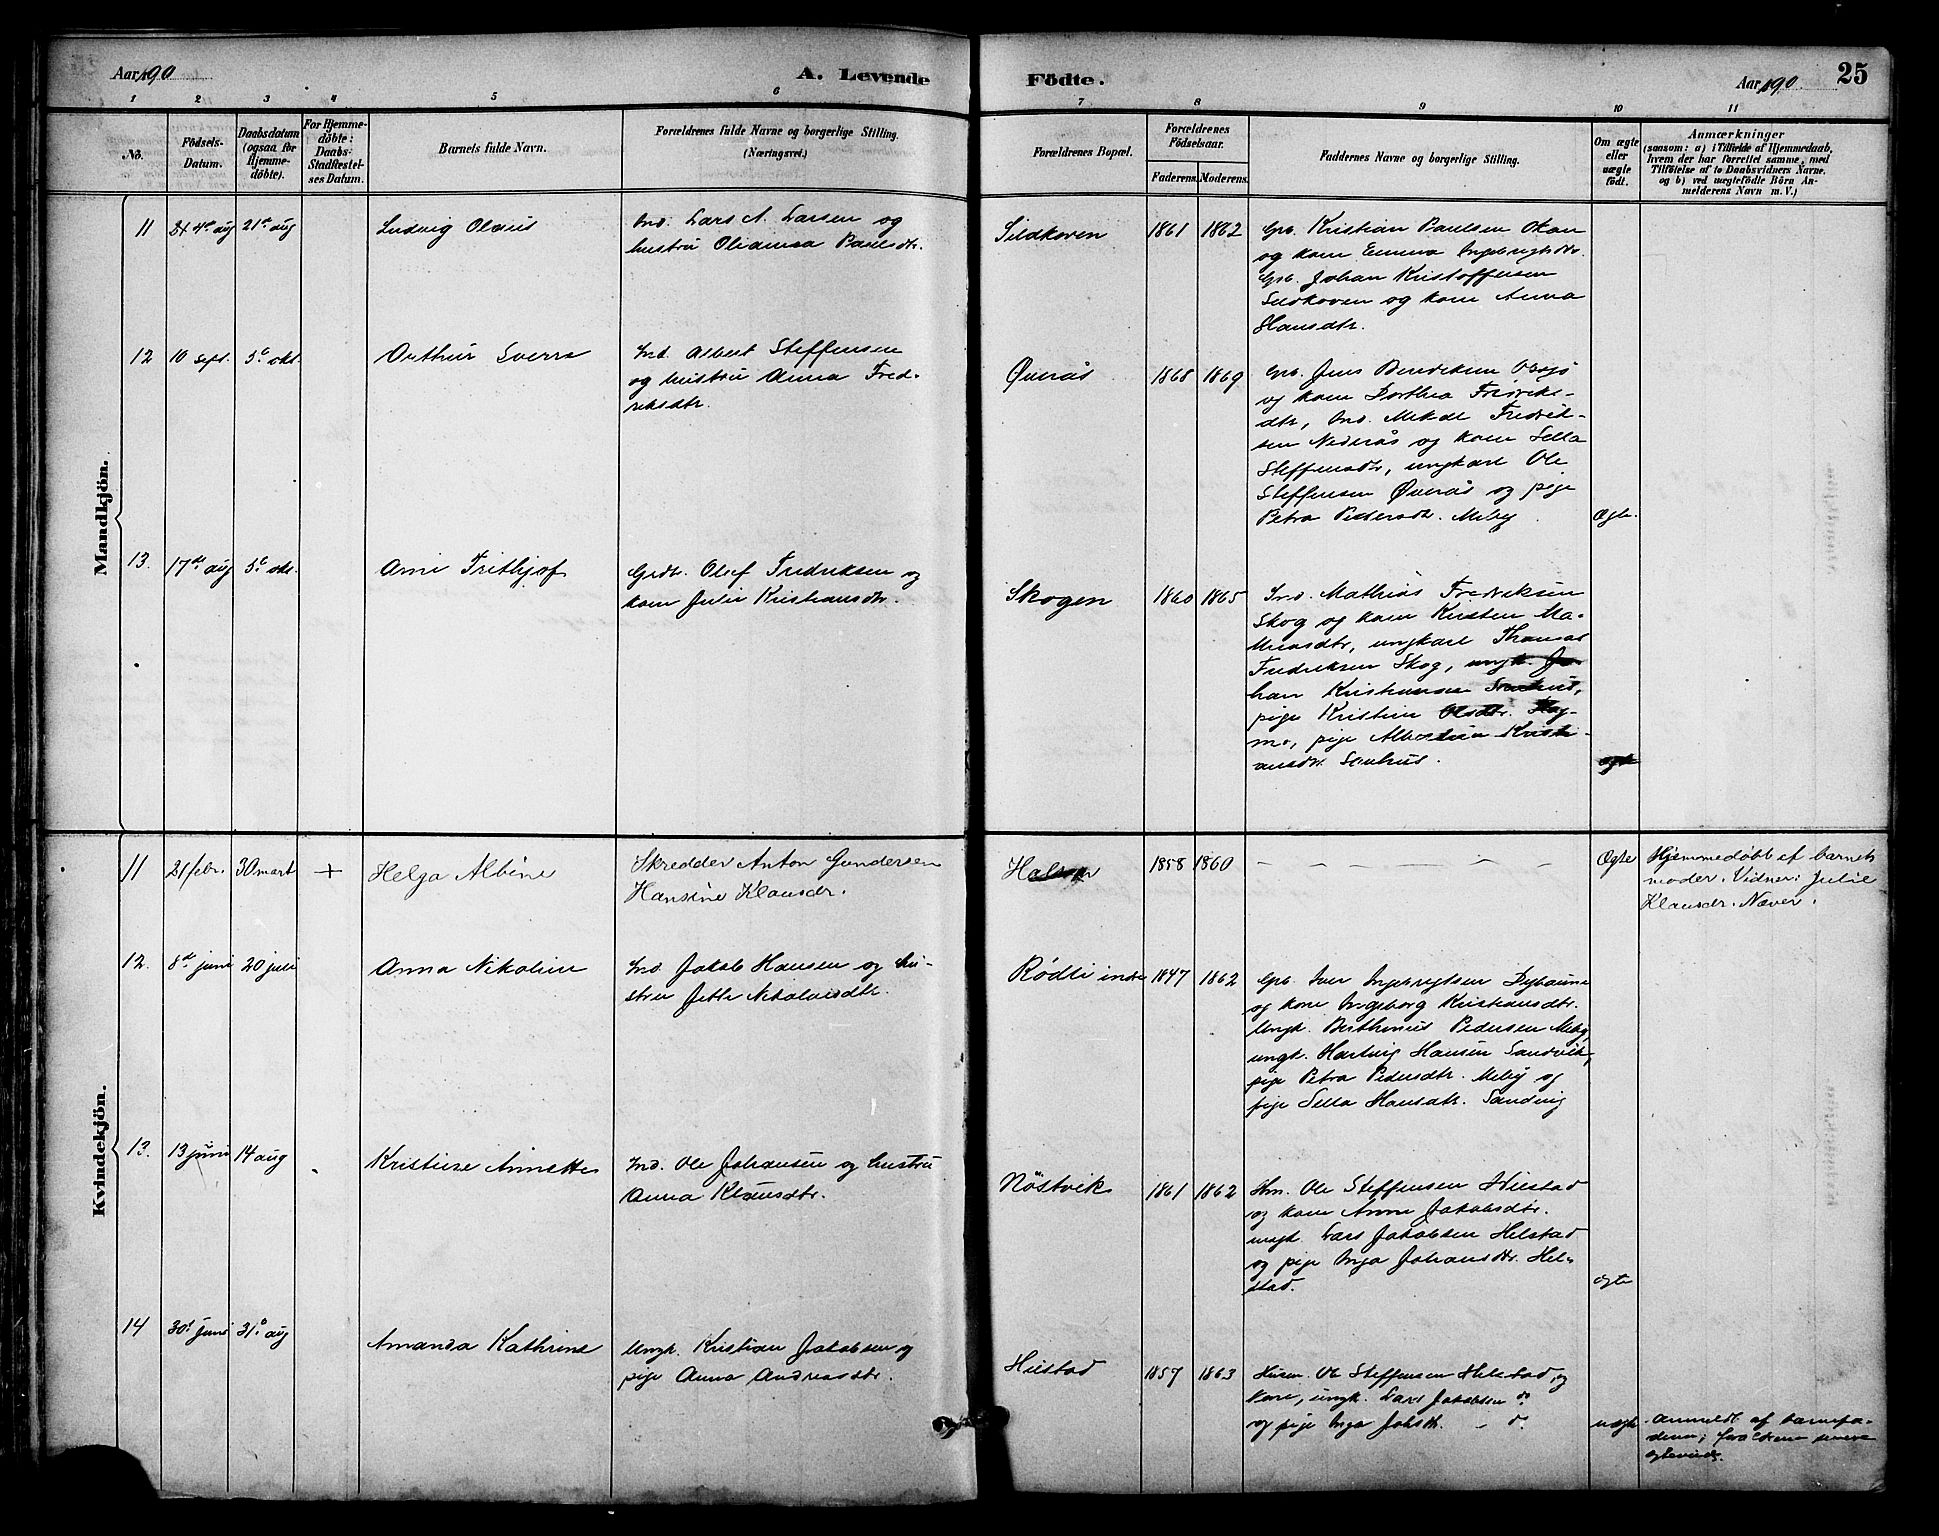 Aar 1890
A. Levende
Födte.
Aar 1890
25
1 2 3 4 5 6 7 8 9 10 11
No.
Födsels-
Datum.
Daabsdatum
(ogsaa for
Hjemme-
döbte).
For Hjemme-
döbte:
Daabs-
Stadfæstel-
ses Datum.
Barnets fulde Navn.
Forældrenes fulde Navne og borgerlige Stilling.
(Næringsvei.)
Forældrenes Bopæl.
Forældrenes
Födselsaar.
Faderens. Moderens.
Faddernes Navne og borgerlige Stilling.
Om ægte
eller
uægte
födt.
Anmærkninger
(saasom: a) i Tilfælde af Hjemmedaab,
hvem der har forrettet samme, med
Tilföielse af to Daabsvidners Navne,
og b) ved uægtefödte Börn An-
melderens Navn m. V.)
Mandkjön.
11
4de aug
21de aug
Ludvig Olaus
Ind. Lars A. Larsen og
hustru Olianna Paulsdtr.
Sildhoven
1861
1862
Gbr. Kristian Paulsen
og kone Emma Ingebrigtsdtr.
Gbr. Johan Kristoffersen
Sildhoven og kone Anna
Hansdtr.
12
10 sept.
5te okt.
Arthur Sverre
Ind. Albert Steffensen
og hustru Anna Fred-
riksdtr.
Øverås
1868
1869
Gbr. Jens Bendiksen
og kone Dorthea Fredriks-
dtr, Ind. Mikal Fredrik-
sen Nederås og kone Sella
Steffensdtr, ungkarl Ole
Steffensen Øverås og pige
Petra Pedersdtr. Meby.
Ægte.
13.
17de aug
5te okt.
Arne Frithjof
Grdbr. Olef Fredriksen og
kone Julie Kristiansdtr.
Skogen
1860
1865
Ind. Mathias Fredriksen
Skog og kone Kirsten Ma-
thiasdtr, ungkarl Thomas
Fredriksen Skog, ungk. Jo-
han Kristiansen
pige Kristine Olsdtr. Hag-
mo, pige Albertine Kristi-
ansdtr.
ægte
Kvindekjön.
11
21 febr.
30 mart
+
Helga Albine
Skredder Anton Gundersen
Hansine Klausdr.
1858
1860
– – – – –
Ægte
Hjemmedøbt af barnets
moder. Vidner: Julie
Klausdr. Næver.
12.
8de juni
20 juli
Anna Nikoline
Ind. Jakob Hansen og hu-
stru Jette Nikolaisdtr.
Rødli indre
1847
1862
Gbr. Iver Ingebrigtsen
og kone Ingeborg Kristiansdtr.
Ungk. Berthinus Pedersen Meby,
ungk. Hartvig Hansen Sandvik,
pige Petra Pedersdtr. Meby og
pige Sella Hansdtr. Sandvig
13.
13 juni
14 aug
Kristine Annette
Ind. Ole Johansen og hustru
Anna Klausdtr.
Nöstvik
1861
1862
Hm. Ole Steffensen Hilstad
og kone Anne Jakobsdtr.
ungk. Lars Jakobsen Hilstad
og pige Inga Johansdtr. Hil-
stad.
ægte
14
30te juni
31te aug
Amanda Kathrine
Ungk. Kristian Jakobsen og
pige Anna Andreasdtr.
Hilstad
1857
1863
Husm. Ole Steffensen Hilstad og
kone, ungk. Lars Jakobsen do
og pige Inga Johsdtr. – do
uægte
Anmeldt af barnefa-
deren; forældrene senere